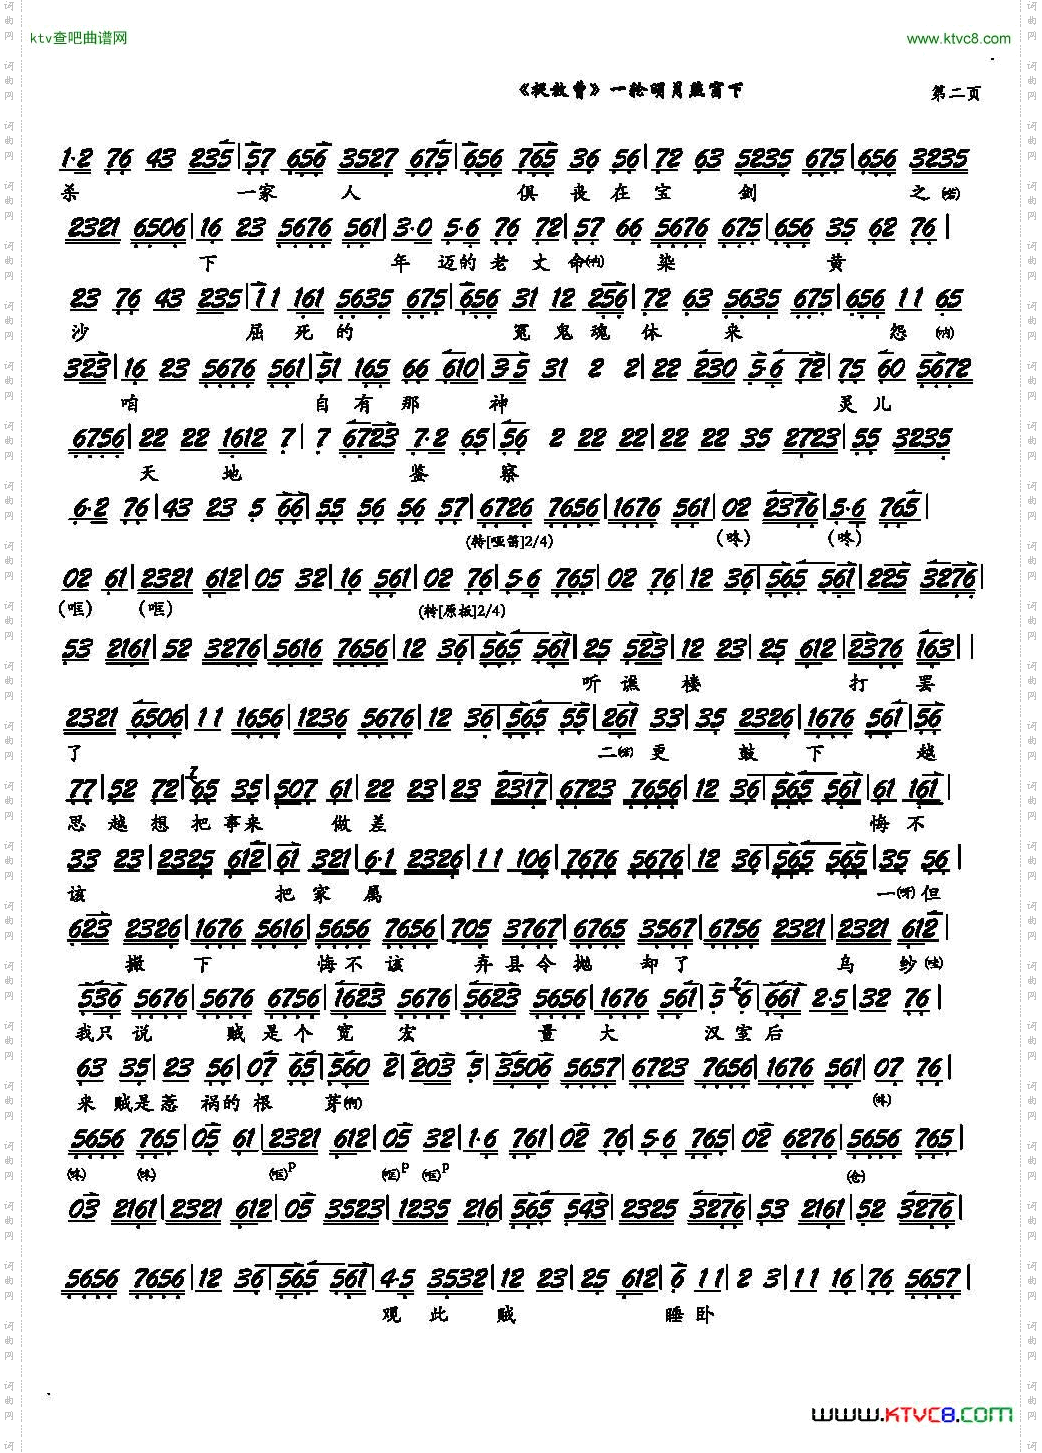 ktv查吧曲谱网
www.ktvc8.com
《捉放曹》一轮明月照窗下
第二页
1·2 76 43 235|57 656 3527 675|656 765 36 56|72 63 5235 675|656 3235
杀 一家 人 俱 丧 在 宝 剑 之(若)
2321 6506|16 23 5676 561|3·0 5·6 76 72|57 66 5676 675|656 35 62 76|
下 年 迈的 老 丈 命(内) 染 黄
23 76 43 235|11 161 5635 675|656 31 12 256|72 63 5635 675|656 11 65
沙 屈 死 的 冤 鬼 魂 休 来 怨(内)
323|16 23 5676 561|51 165 66 610|3·5 31 2 2|22 230 5·6 72|75 60 5672
咱 自 有 那 神 灵 儿
6756|22 22 1612 7|7 6723 7·2 65|56 2 22 22|22 22 35 2723|55 3235
天 地 鉴 察
6·2 76|43 23 5 66|55 56 56 57|6726 7656|1676 561|02 2376|5·6 765|
(转[哑笛]2/4) (咚) (咚)
02 61|2321 612|05 32|16 561|02 76|5·6 765|02 76|12 36|565 561|225 3276|
(哐) (哐) (转[原板]2/4)
53 2161|52 3276|5616 7656|12 36|565 561|25 523|12 23|25 612|2376 163|
听 谯 楼 打 罢
2321 6506|11 1656|1236 5676|12 36|565 55|261 33|35 2326|1676 561|56
了 二 更 鼓 下 越
77|52 72|65 35|507 61|22 23|23 2317|6723 7656|12 36|565 561|61 161|
思 越 想 把 事来 做 差 悔 不
33 23|2325 612|61 321|6·1 2326|11 106|7676 5676|12 36|565 565|35 56|
该 把 家 属 一(呀)但
623 2326|1676 5616|5656 7656|705 3767|6765 3567|6756 2321|2321 612|
搬 下 悔 不 该 弃 县 令 抛 却 了 乌 纱
536 5676|5676 6756|1623 5676|5623 5656|1676 561|5 6|661 2·5|32 76|
我只 说 贼 是 个 宽 宏 量 大 汉 室 后
63 35|23 56|07 65|560 2|203 5|3506 5657|6723 7656|1676 561|07 76|
来 贼是 惹 祸的 根 芽(啊)
5656 765|05 61|2321 612|05 32|1·6 761|02 76|5·6 765|02 6276|5656 765|
(哐)P (哐)P (哐)P (仓)
03 2161|2321 612|05 3523|1235 216|565 543|2325 3276|53 2161|52 3276|
5656 7656|12 36|565 561|4·5 3532|12 23|25 612|6 11|2 3|11 16|76 5657|
观 此 贼 睡 卧
www.KTVC8.COM